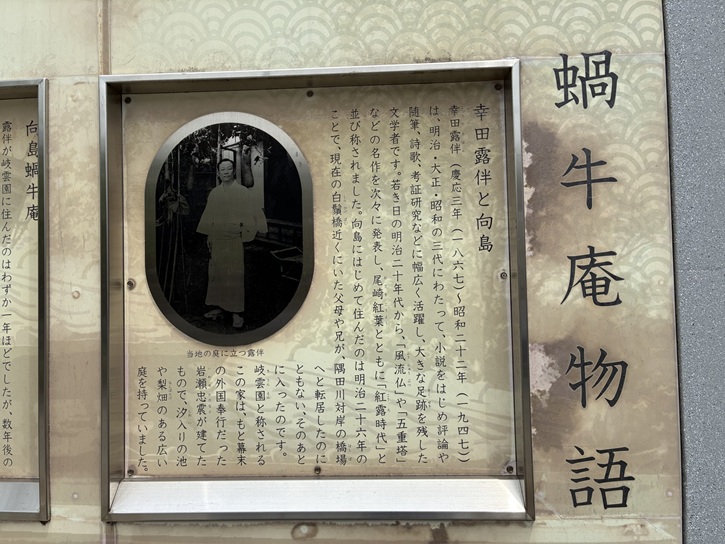 蝸牛庵物語
幸田露伴と向島
幸田露伴(慶応三年(一八六七)〜昭和二十二年(一九四七)
は、明治・大正・昭和の三代にわたって、小説をはじめ評論や
随筆、詩歌、考証研究などに幅広く活躍し、大きな足跡を残した
文学者です。若き日の明治二十年代から、「風流仏」や「五重塔」
などの名作を次々に発表し、尾崎紅葉とともに「紅露時代」と
並び称されました。向島にはじめて住んだのは明治二十六年の
ことで、現在の白鬚橋近くにいた父母や兄が、隅田川対岸の橋場
へと転居したのに
ともない、そのあと
に入ったのです。
岐雲園と称される
この家は、もと幕末
の外国奉行だった
岩瀬忠震が建てた
もので、汐入りの池
や梨畑のある広い
庭を持っていました。
当地の庭に立つ露伴
向島蝸牛庵
露伴が岐雲園に住んだのはわずか一年ほどでしたが、数年後の